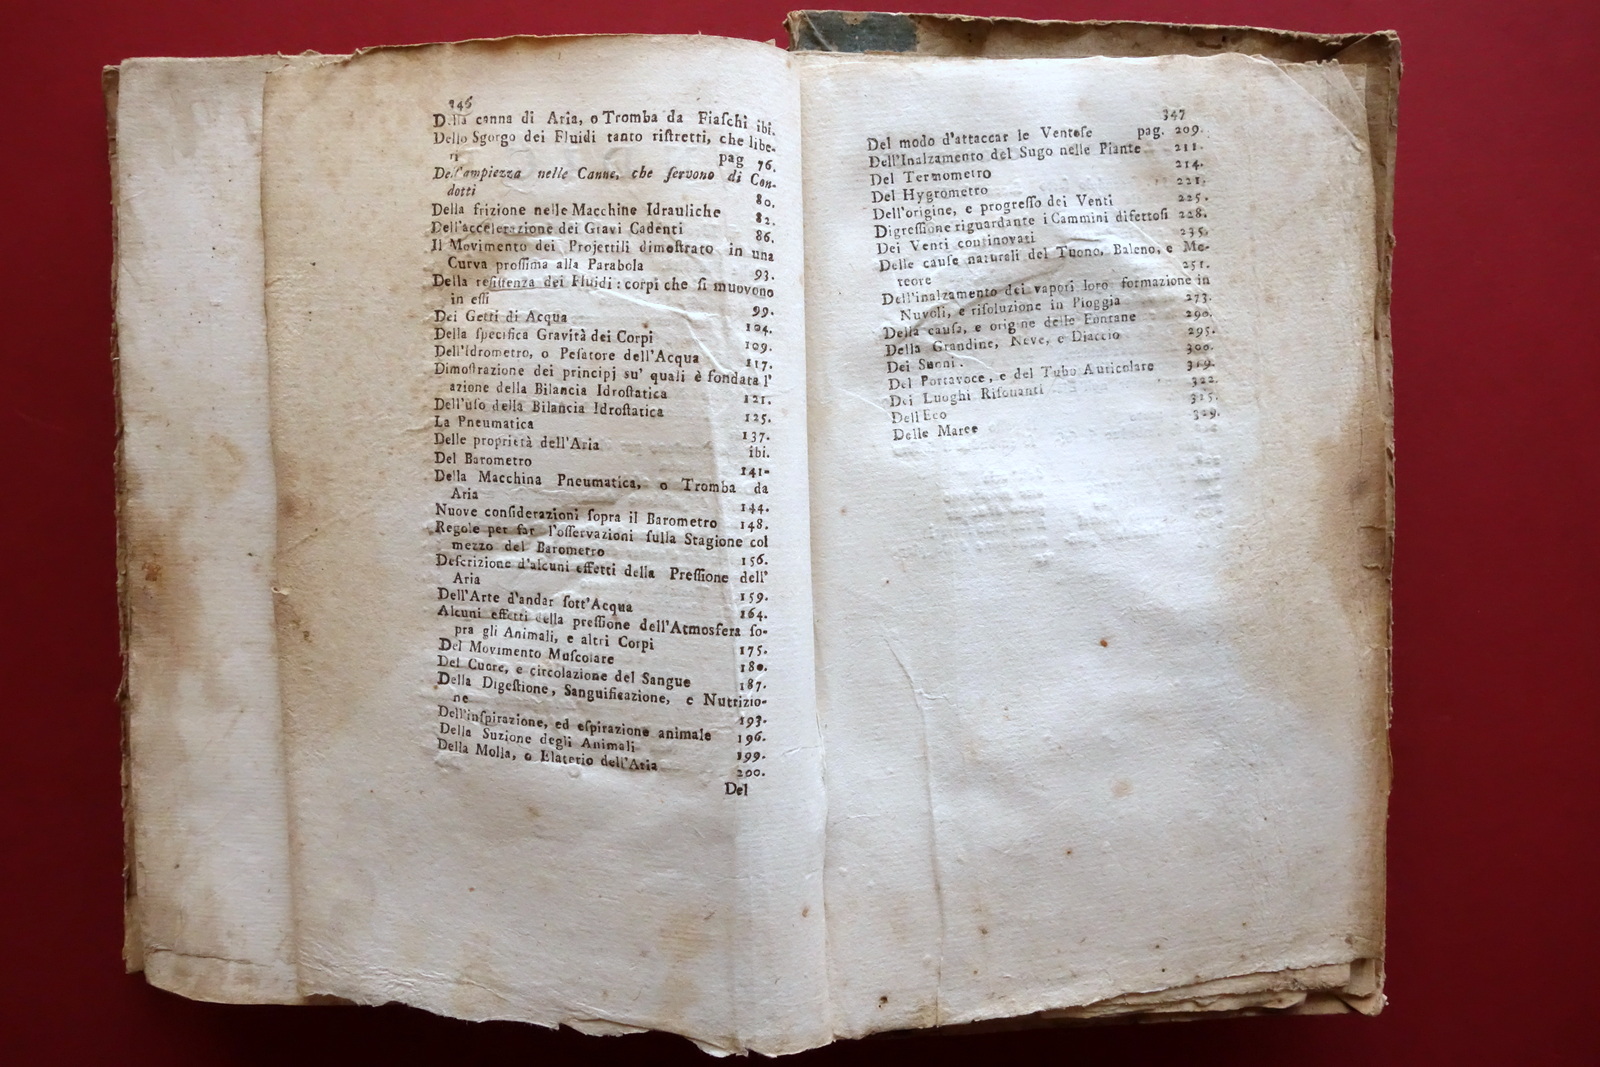 346
Della canna di Aria, o Tromba da Fiaſchi ibi.
Dello Sgorgo dei Fluidi tanto riſtretti, che libe-
ri pag 76.
Dell'ampiezza nelle Canne, che ſervono di Con-
dotti 80.
Della frizione nelle Macchine Idrauliche 82.
Dell'accelerazione dei Gravi Cadenti 86.
Il Movimento dei Projettili dimoſtrato in una
Curva proſſima alla Parabola 93.
Della reſiſtenza dei Fluidi : corpi che ſi muovono
in eſſi 99.
Dei Getti di Acqua 104.
Della ſpecifica Gravità dei Corpi 109.
Dell'Idrometro, o Peſatore dell'Acqua 117.
Dimoſtrazione dei principj su' quali è fondata l'
azione della Bilancia Idroſtatica 121.
Dell'uſo della Bilancia Idroſtatica 125.
La Pneumatica 137.
Delle proprietà dell'Aria ibi.
Del Barometro 141.
Della Macchina Pneumatica, o Tromba da
Aria 144.
Nuove conſiderazioni ſopra il Barometro 148.
Regole per far l'oſſervazioni ſulla Stagione col
mezzo del Barometro 156.
Deſcrizione d'alcuni effetti della Preſſione dell'
Aria 159.
Dell'Arte d'andar ſott'Acqua 164.
Alcuni effetti della preſſione dell'Atmosfera ſo-
pra gli Animali, e altri Corpi 175.
Del Movimento Muſcolare 180.
Del Cuore, e circolazione del Sangue 187.
Della Digeſtione, Sanguificazione, e Nutrizio-
ne 193.
Dell'inſpirazione, ed eſpirazione animale 196.
Della Suzione degli Animali 199.
Della Molla, o Elaterio dell'Aria 200.
Del
347
Del modo d'attaccar le Ventoſe pag. 209.
Dell'Inalzamento del Sugo nelle Piante 211.
Del Termometro 214.
Del Hygrometro 221.
Dell'origine, e progreſſo dei Venti 225.
Digreſſione riguardante i Cammini difettoſi 228.
Dei Venti continovati 235.
Delle cauſe naturali del Tuono, Baleno, e Me-
teore 251.
Dell'inalzamento dei vapori loro formazione in
Nuvoli, e riſoluzione in Pioggia 273.
Della cauſa, e origine delle Fontane 290.
Della Grandine, Neve, e Diaccio 295.
Dei Suoni. 300.
Del Portavoce, e del Tubo Auticolare 319.
Dei Luoghi Riſonanti 322.
Dell'Eco 325.
Delle Maree 329.